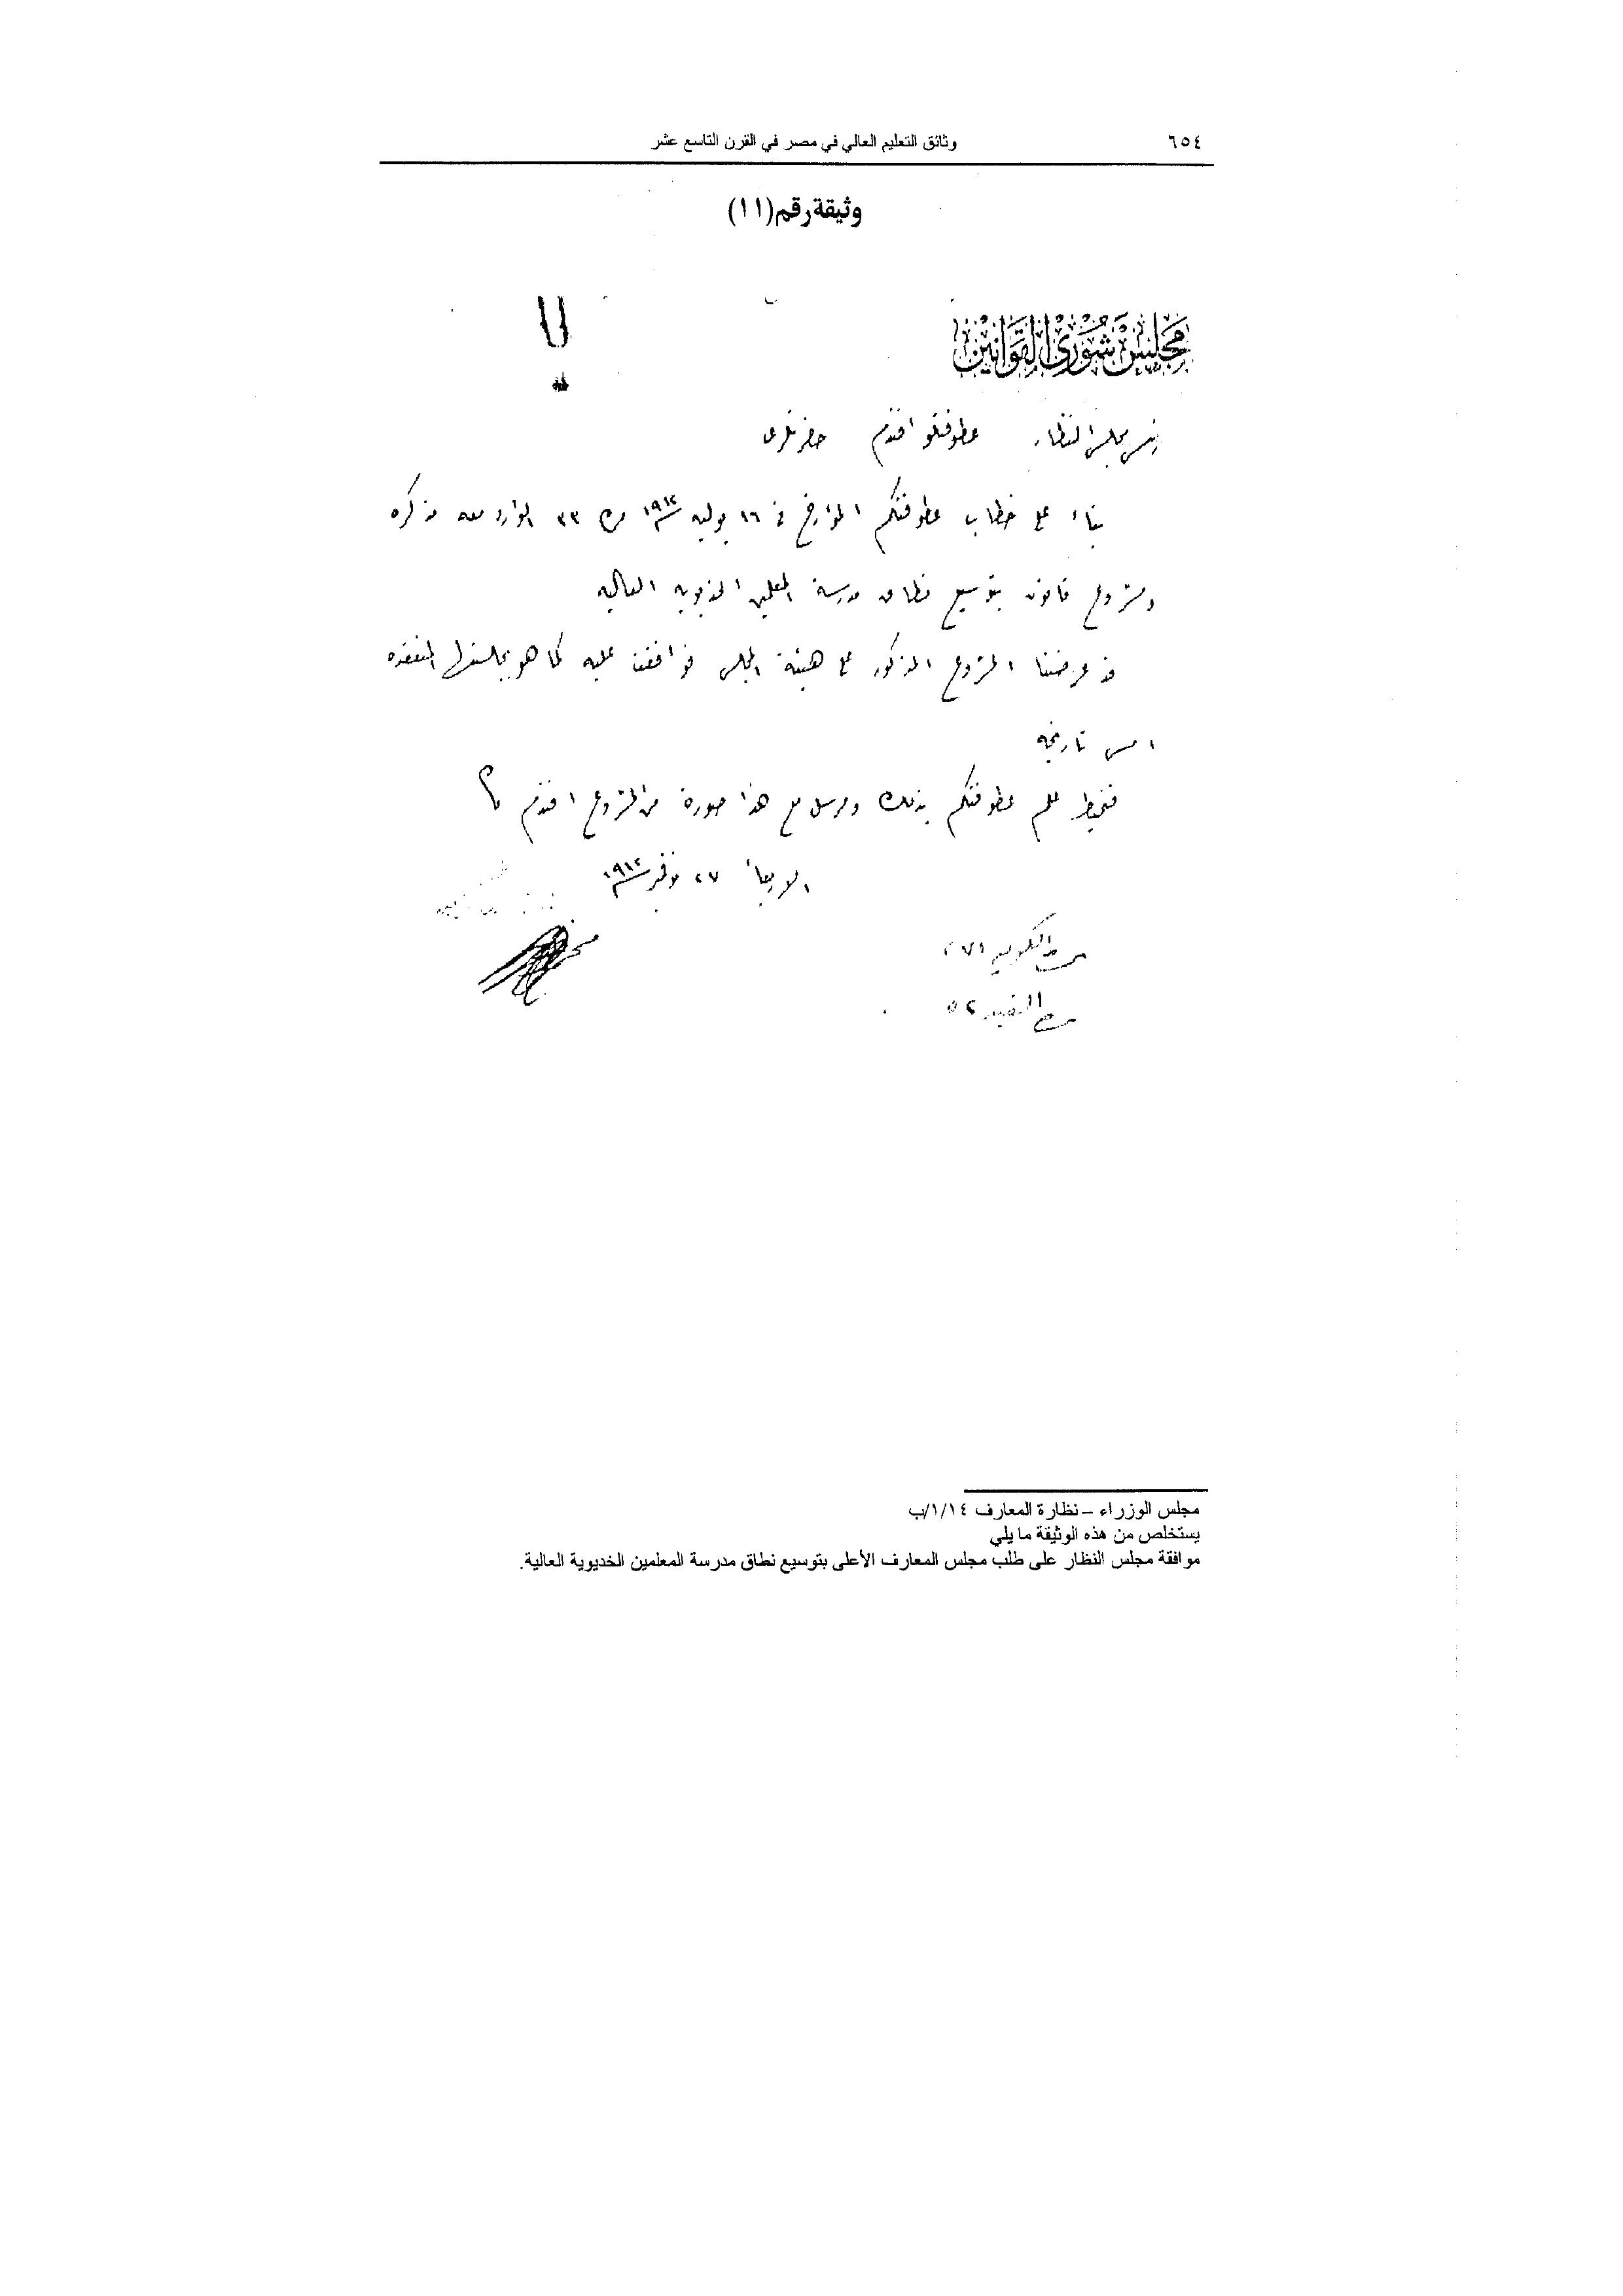 ٦٥٤ وثائق التعليم العالي في مصر في القرن التاسع عشر
وثيقة رقم (١١)
مجلس شورى القوانين
رئيس مجلس النظار عطوفتلو افندم حضرتلرى
بناء على خطاب عطوفتكم المؤرخ في ١٦ يوليه سنة ١٩١٢ نمرة ٣٣ الوارد معه مذكره
ومشروع قانون بتوسيع نطاق مدرسة المعلمين الخديويه العاليه
قد عرضنا المشروع المذكور على هيئة المجلس فوافقت عليه كما هو بجلستها المنعقده
امس تاريخه
فنحيط علم عطوفتكم بذلك ومرسل مع هذا صورة من المشروع افندم
الاربعاء ٢٧ نوفمبر سنة ١٩١٢
٢٧١
القيد ٥٢
مجلس الوزراء – نظارة المعارف ١/١٤/ب
يستخلص من هذه الوثيقة ما يلي
موافقة مجلس النظار على طلب مجلس المعارف الأعلى بتوسيع نطاق مدرسة المعلمين الخديوية العالية.